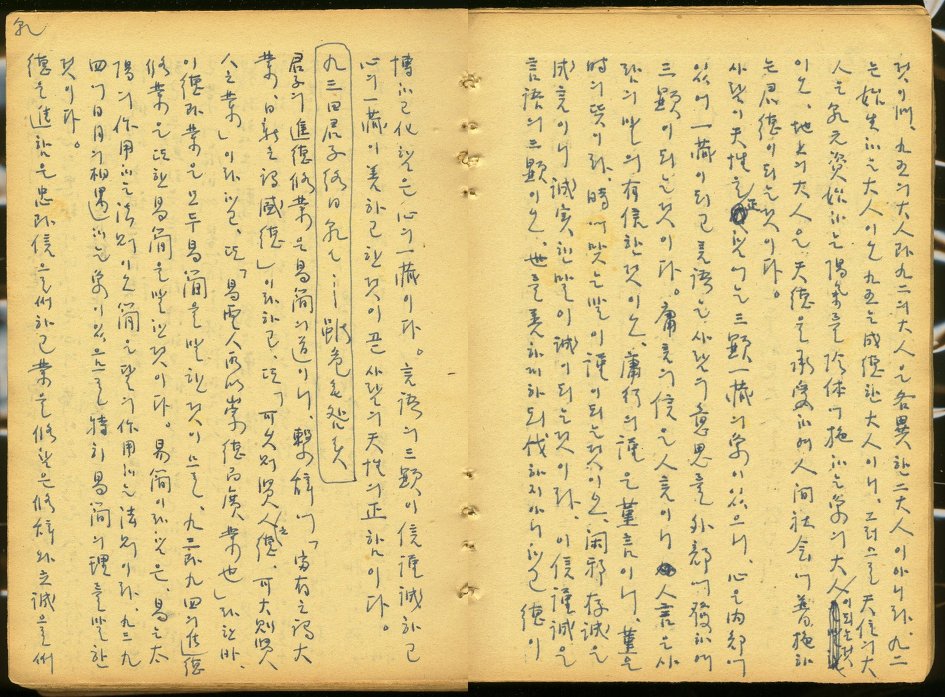 것이며, 九五의 大人과 九二의 大人은 各異한 二大人이 아니라, 九二
는 始生하는 大人이오 九五는 成德한 大人이니, 그럼으로 天位의 大
人은 乾元資始하는 陽氣를 으로 施하는 象의 大人이 되는 것
이오, 地上의 大人은 天德을 承受하야 人間社會에 普施하
는 君德이 되는 것이다.
사람의 天性을 正 함에는 三顯一藏의 象이 있으니, 心은 內部에
있어 一藏이 되고 言語는 사람의 意思를 外部에 發하야
三顯이 되는 것이다. 庸言의 信은 人言이니 人言은 사
람의 말의 有信한 것이오, 庸行의 謹은 堇言이니, 堇은
時의 뜻이라, 時에 맞는 말이 謹이 되는 것이오, 閑邪存誠은
成言이니 誠實한 말이 誠이 되는 것이다. 이 信謹誠은
言語의 三顯이오, 世를 善하게 하되 伐하지 아니하고 德이
乾
博하고 化함은 心의 一藏이다. 言語의 三顯이 信謹誠하고
心의 一藏이 善하고 한 것이 곧 사람의 天性의 正함이다.
九三曰君子終日乾乾…雖危无咎矣
君子의 進德修業은 易簡의 道이니, 繫辭에 「富有之謂大
業, 日新之謂盛德」이라 하고, 또 「可久則賢人之德, 可大則賢人
之業」이라 하고, 또 「易聖人所以崇德而廣業也」라 한 바,
이 德과 業은 모두 易簡을 말한 것이므로, 九三과 九四의 進德
修業은 또한 易簡을 말한 것이다. 易簡이라 함은, 易는 太
陽의 作用하는 法則이오 簡은 달의 作用하는 法則이라, 九三九
四에 日月의 相遇하는 象이 있으므로 特히 易簡의 理를 말한
것이다.
德을 進함은 忠과 信으로써 하고 業을 修함은 修辭와 立誠으로써